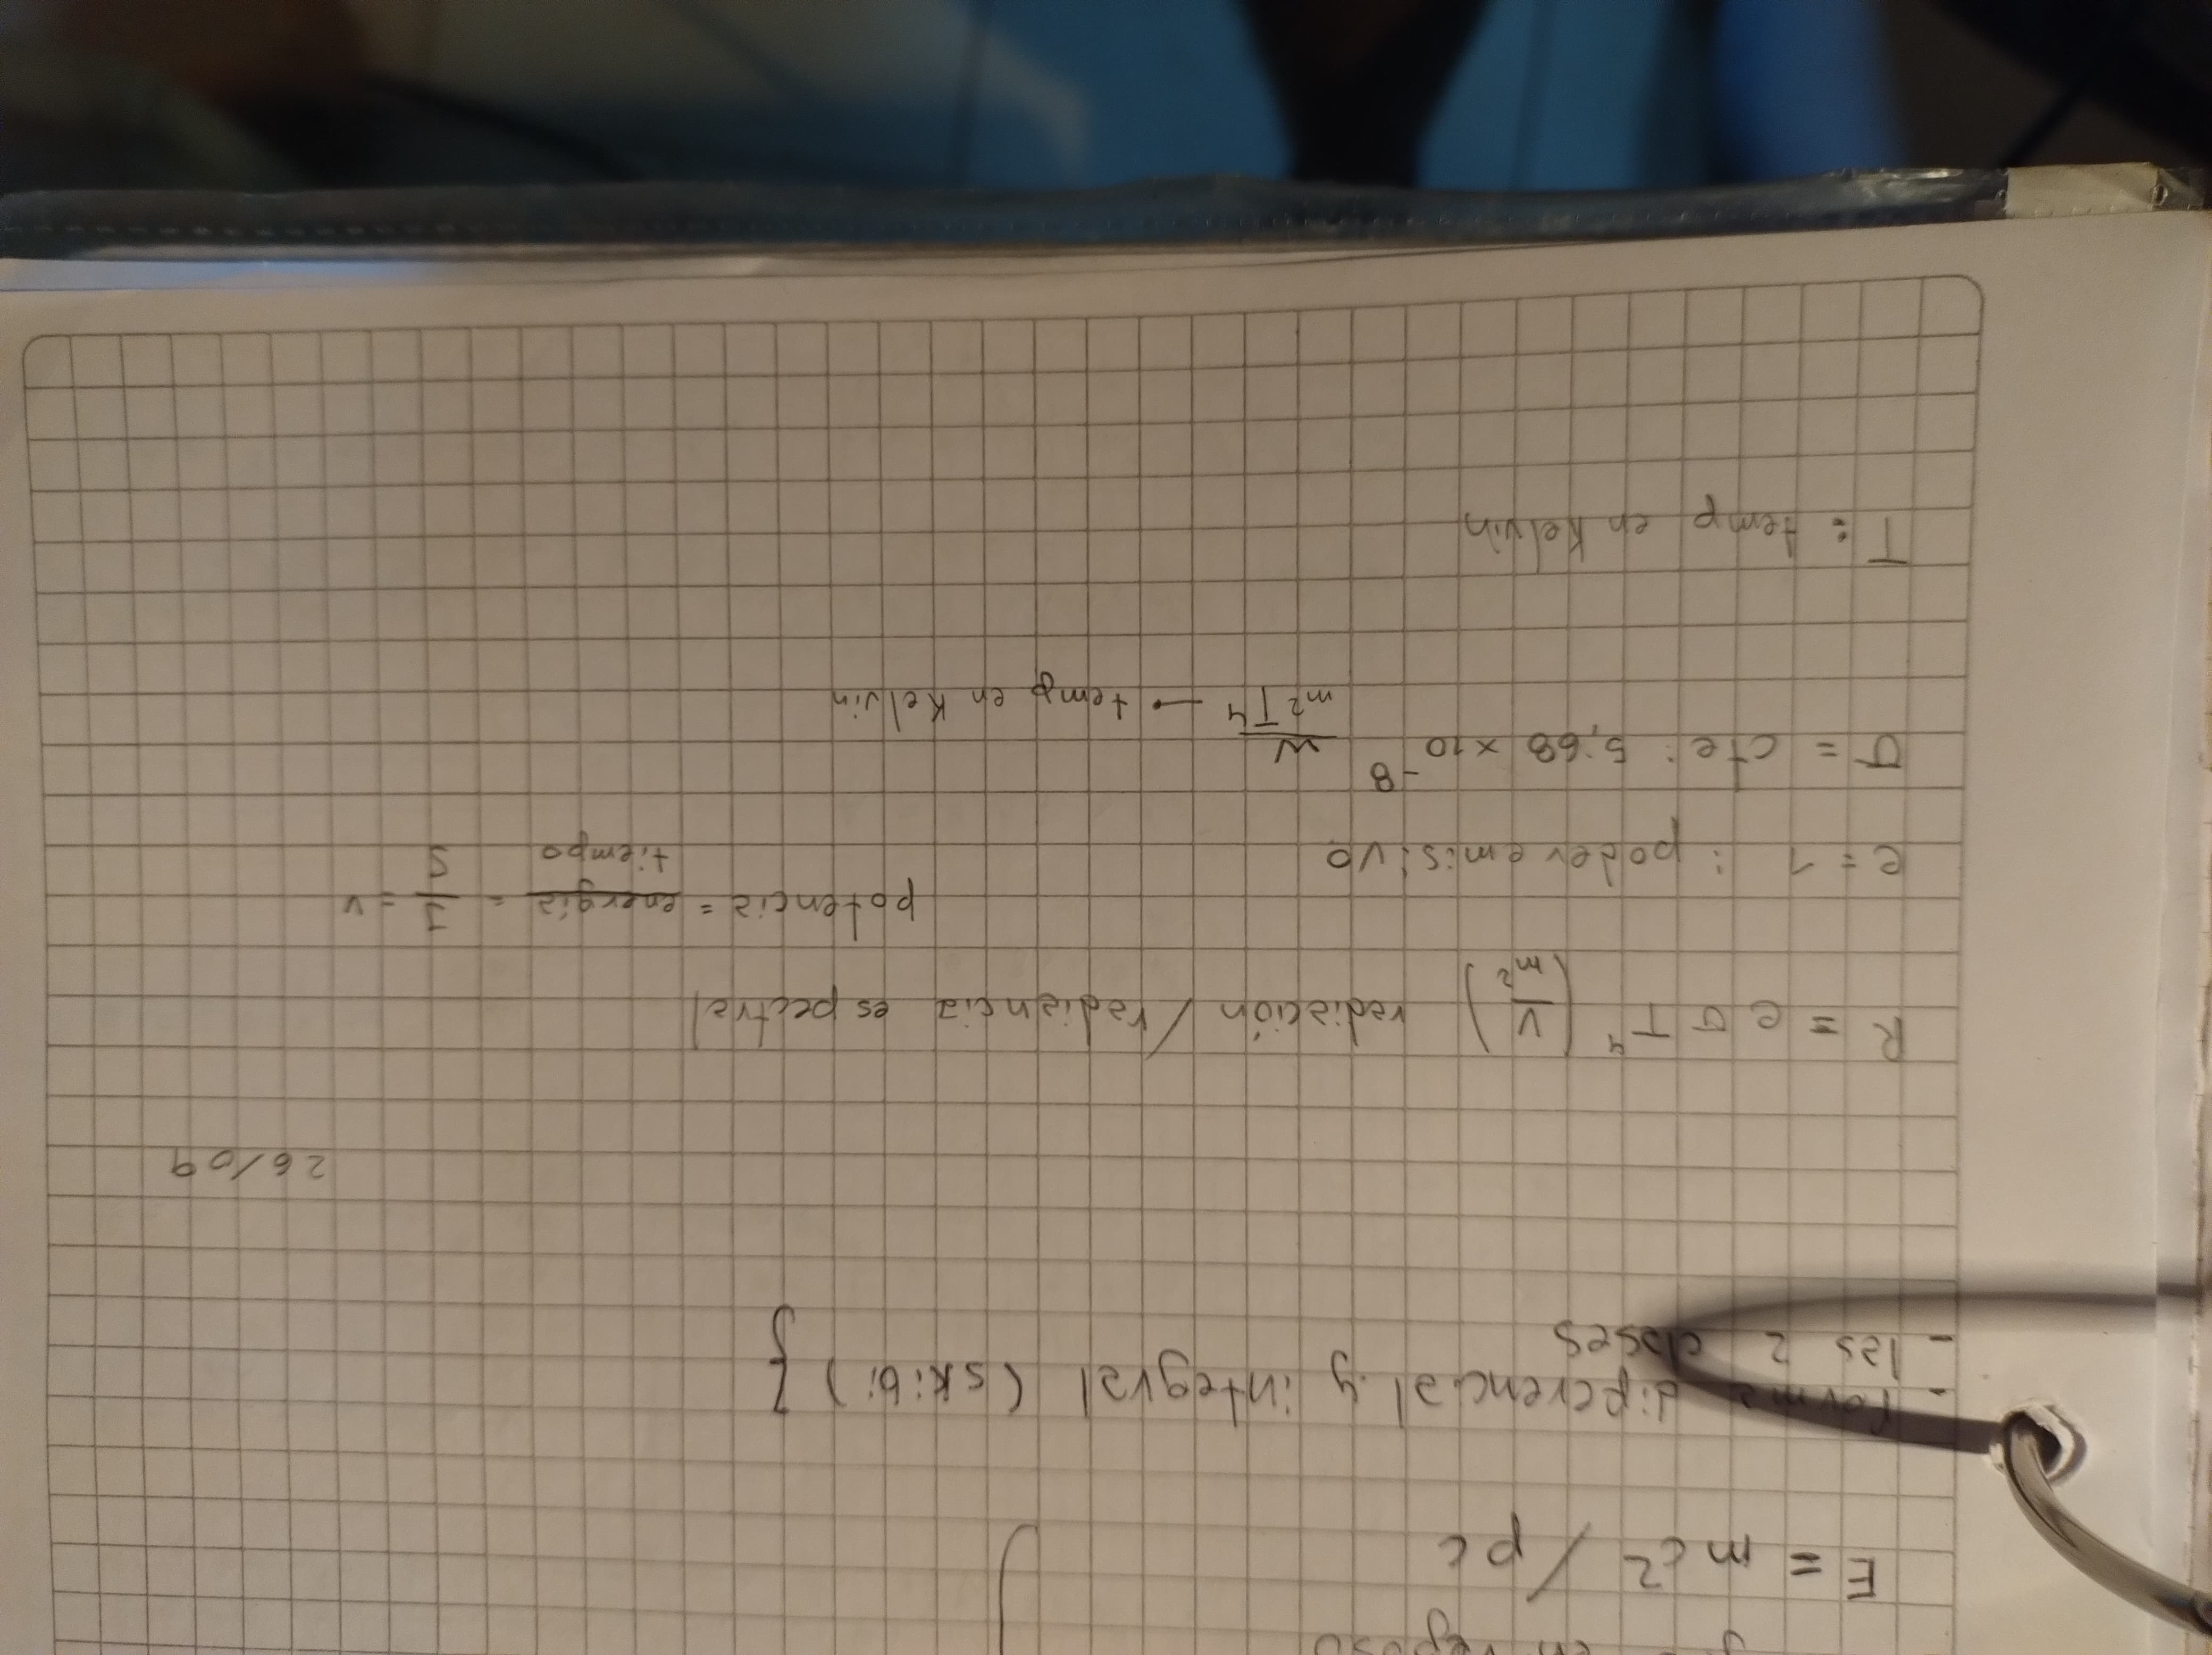 en reposo
E = mc² / pc
- forma diferencial y integral (skibi) }
- las 2 clases
26/09
R = e σ T⁴ (V/m²) radiación / radiancia espectral
potencia = energía/tiempo = J/S = v
e = 1 : poder emisivo
σ = cte: 5,68 × 10⁻⁸ W/m² T⁴ → temp en Kelvin
T: temp en Kelvin